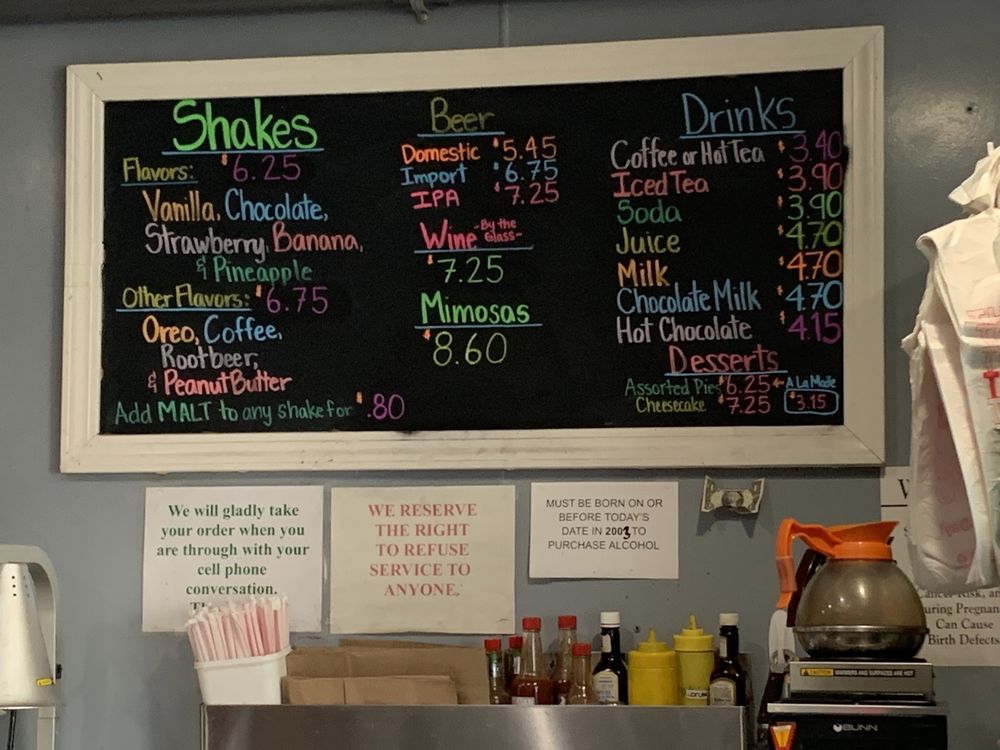 Shakes
Flavors: $6.25
Vanilla, Chocolate,
Strawberry, Banana,
& Pineapple
Other Flavors: $6.75
Oreo, Coffee,
Rootbeer,
& Peanut Butter
Add MALT to any shake for $.80
Beer
Domestic $5.45
Import $6.75
IPA $7.25
Wine -By the Glass-
$7.25
Mimosas
$8.60
Drinks
Coffee or Hot Tea $3.40
Iced Tea $3.90
Soda $3.90
Juice $4.70
Milk $4.70
Chocolate Milk $4.70
Hot Chocolate $4.15
Desserts
Assorted Pies $6.25 A La Mode
Cheesecake $7.25 $3.15
We will gladly take
your order when you
are through with your
cell phone
conversation.
WE RESERVE
THE RIGHT
TO REFUSE
SERVICE TO
ANYONE.
MUST BE BORN ON OR
BEFORE TODAY'S
DATE IN 2003 TO
PURCHASE ALCOHOL
Cancer Risk, an
uring Pregnan
Can Cause
Birth Defects
CAUTION WARMERS AND SURFACES ARE HOT
BUNN